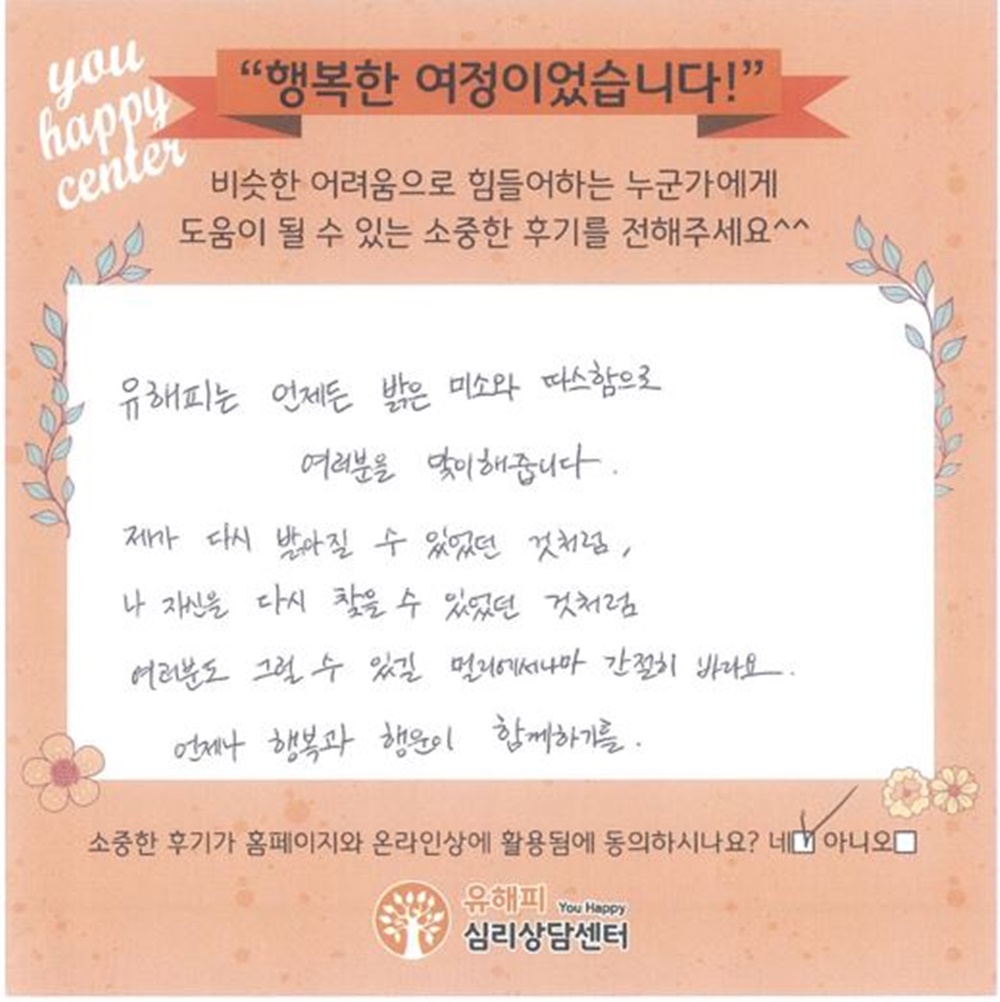 you
happy
center
“행복한 여정이었습니다!”
비슷한 어려움으로 힘들어하는 누군가에게
도움이 될 수 있는 소중한 후기를 전해주세요^^
유해피는 언제든 밝은 미소와 따스함으로
여러분을 맞이해줍니다.
제가 다시 밝아질 수 있었던 것처럼,
나 자신을 다시 찾을 수 있었던 것처럼
여러분도 그럴 수 있길 멀리에서나마 간절히 바라요.
언제나 행복과 행운이 함께하기를.
소중한 후기가 홈페이지와 온라인상에 활용됨에 동의하시나요? 네☑ 아니오☐
유해피 You Happy
심리상담센터